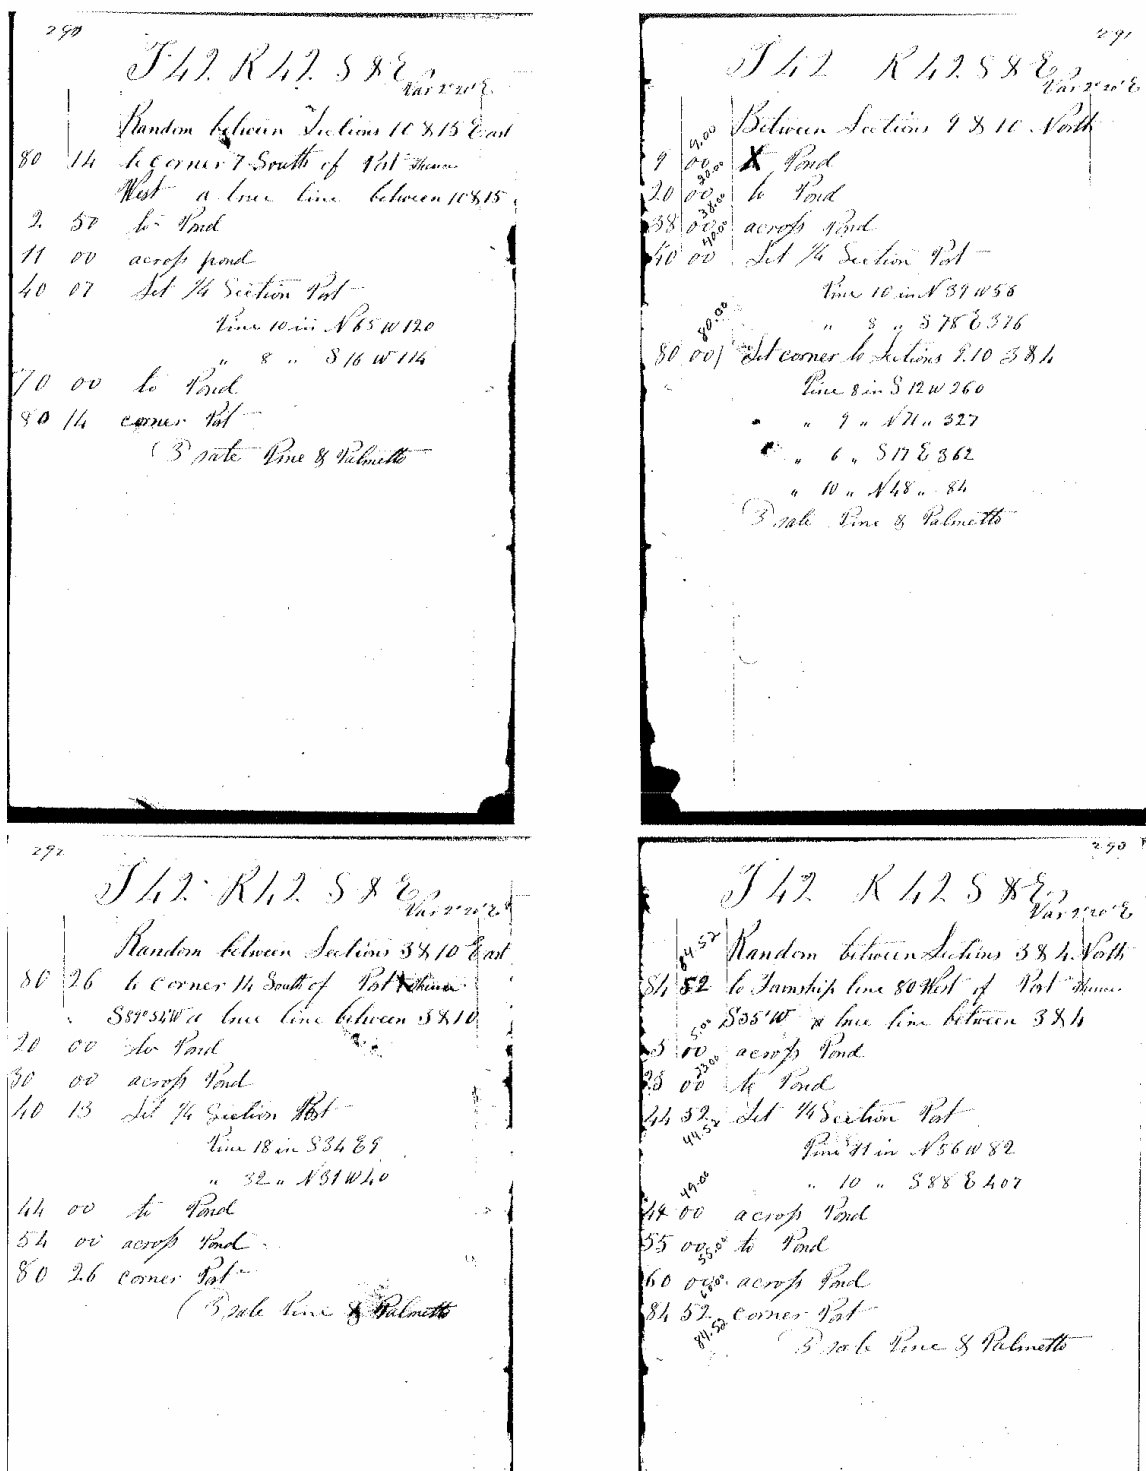 290
T 42. R 42. S & E.
Var 2°20' E.
Random between Sections 10 & 15 East
80 14 to corner 7 South of Post thence
West a true line between 10 & 15
2 50 to Pond
11 00 across pond
40 07 Set 1/4 Section Post
Pine 10 in N 65 W 120
" 8 " S 16 W 114
70 00 to Pond
80 14 corner Post
(3 rate Pine & Palmetto
291
T 42 R 42 S & E.
Var 2°20' E
Between Sections 9 & 10 North
9 00 9.00 X Pond
20 00 20.00 to Pond
38 00 38.00 across Pond
40 00 40.00 Set 1/4 Section Post
Pine 10 in N 39 W 58
" 8 " S 78 E 376
80 00 80.00 Set corner to Sections 9.10 3 & 4
Pine 8 in S 12 W 260
" 9 " N 71 " 327
" 6 " S 17 E 362
" 10 " N 48 " 84
3 rate Pine & Palmetto
292
T 42. R 42. S & E.
Var 2°20' E
Random between Sections 3 & 10 East
80 26 to corner 14 South of Post thence
S 89°54' W a true line between 3 & 10
20 00 to Pond
30 00 across Pond
40 13 Set 1/4 Section Post
Pine 18 in S 34 E 9
" 32 " N 31 W 40
44 00 to Pond
54 00 across Pond
80 26 corner Post
(3 rate Pine & Palmetto
293
T 42 R 42 S & E.
Var 2°20' E
Random between Sections 3 & 4 North
84 52 84.52 to Township line 80 West of Post thence
S 35' W a true line between 3 & 4
5 00 5.00 across Pond
23 00 23.00 to Pond
44 52 44.52 Set 1/4 Section Post
Pine 11 in N 56 W 82
" 10 " S 88 E 407
49 00 49.00 across Pond
55 00 55.00 to Pond
60 00 across Pond
84 52 84.52 corner Post
3 rate Pine & Palmetto